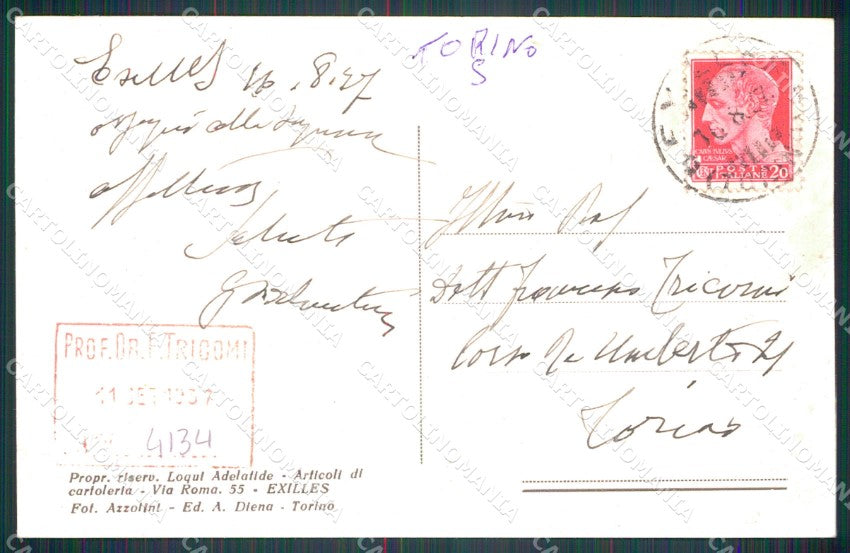 Exilles 16.8.37
alla Signora
affettuosi
Saluti
TORINO
S
POSTE
ITALIANE 20
CAESAR
Ill.mo Prof
Dott Francesco Tricomi
Corso Re Umberto 24
Torino
PROF. DR. F. TRICOMI
11 SET 1937
4134
Propr. riserv. Loqui Adelaide - Articoli di
cartoleria - Via Roma. 55 - EXILLES
Fot. Azzolini - Ed. A. Diena - Torino
CARTOLINOMANIA